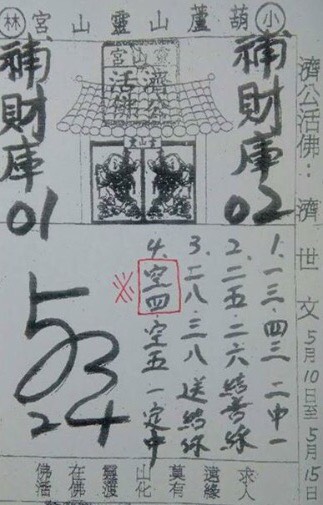 小 葫蘆山靈山宮 林
濟公活佛：濟世文 5月10日至5月15日
補財庫02
靈山宮
濟公
活佛
補財庫01
1.一三.四三 二中一
2.二五.二六 結善緣
3.二八.三八 送結緣
4.空四.空五 一定中
※
5 3
2 4
佛在靈山莫遠求
活佛渡化有緣人